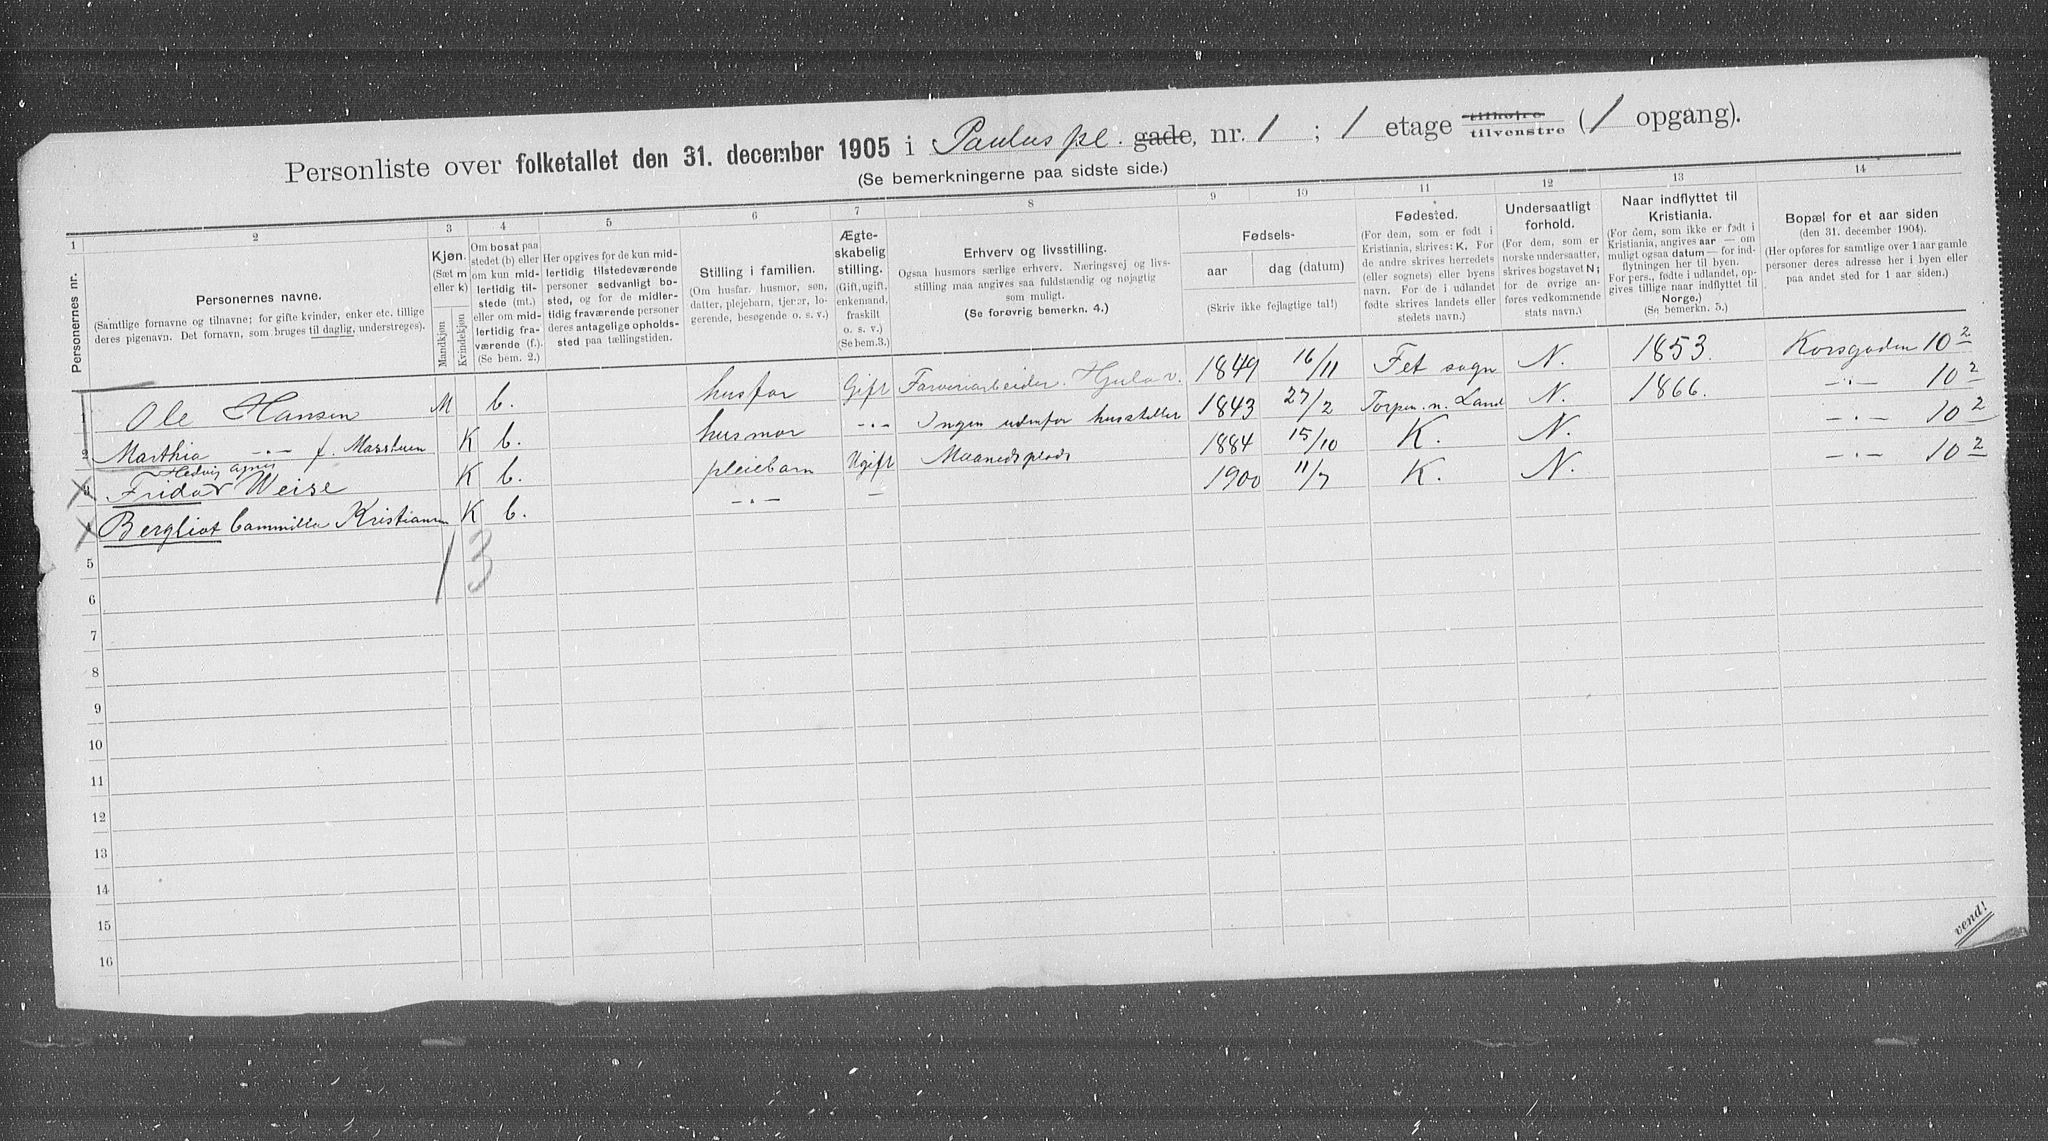 Personliste over folketallet den 31. december 1905 i Paulus pl. gade, nr. 1 ; 1 etage tilhøire tilvenstre ( 1 opgang).
(Se bemerkningerne paa sidste side.)
1 2 3 4 5 6 7 8 9 10 11 12 13 14
Personernes nr.
Personernes navne.
(Samtlige fornavne og tilnavne; for gifte kvinder, enker etc. tillige
deres pigenavn. Det fornavn, som bruges til daglig, understreges).
Kjøn.
(Sæt m
eller k)
Mandkjøn
Kvindekjøn
Om bosat paa
stedet (b) eller
om kun mid-
lertidig til-
stede (mt.)
eller om mid-
lertidig fra-
værende (f.).
(Se bem. 2.)
Her opgives for de kun mid-
lertidig tilstedeværende
personer sedvanligt bo-
sted, og for de midler-
tidig fraværende personer
deres antagelige opholds-
sted paa tællingstiden.
Stilling i familien.
(Om husfar, husmor, søn,
datter, plejebarn, tjener, lo-
gerende, besøgende o. s. v.)
Ægte-
skabelig
stilling.
(Gift, ugift,
enkemand,
fraskilt
o. s. v.)
(Se bem.3.)
Erhverv og livsstilling.
Ogsaa husmors særlige erhverv. Næringsvej og livs-
stilling maa angives saa fuldstændig og nøjagtig
som muligt.
(Se forøvrig bemerkn. 4.)
Fødsels-
aar
dag (datum)
(Skriv ikke fejlagtige tal!)
Fødested.
(For dem, som er født i
Kristiania, skrives: K. For
de andre skrives herredets
(eller sognets) eller byens
navn. For de i udlandet
fødte skrives landets eller
stedets navn.)
Undersaatligt
forhold.
(For dem, som er
norske undersaatter,
skrives bogstavet N;
for de øvrige an-
føres vedkommende
stats navn.)
Naar indflyttet til
Kristiania.
(For dem, som ikke er født i
Kristiania, angives aar — om
muligt ogsaa datum — for ind-
flytningen her til byen.
For pers., fødte i udlandet, op-
gives tillige naar indflyttet til
Norge.)
(Se bemerkn. 5.)
Bopæl for et aar siden
(den 31. december 1904).
(Her opføres for samtlige over 1 aar gamle
personer deres adresse her i byen eller
paa andet sted for 1 aar siden.)
1 Ole Hansen M b. husfar Gift Farveriarbeider. Hjula v. 1849 16/11 Fet sogn N. 1853. Korsgaden 10 2
2 Marthia -"- f. K b. husmor -"- Ingen udenfor husstellet 1843 27/2 Torpen. n. Land N. 1866. -"- 10 2
Hedvig Agnes
Frida Weise K b. pleiebarn Ugift Maanedsplads 1884 15/10 K. N. -"- 10 2
Bergliot Cammilla Kristiansen K b. -"- — 1900 11/7 K. N. -"- 10 2
1 3
5
6
7
8
9
10
11
12
13
14
15
16
vend!